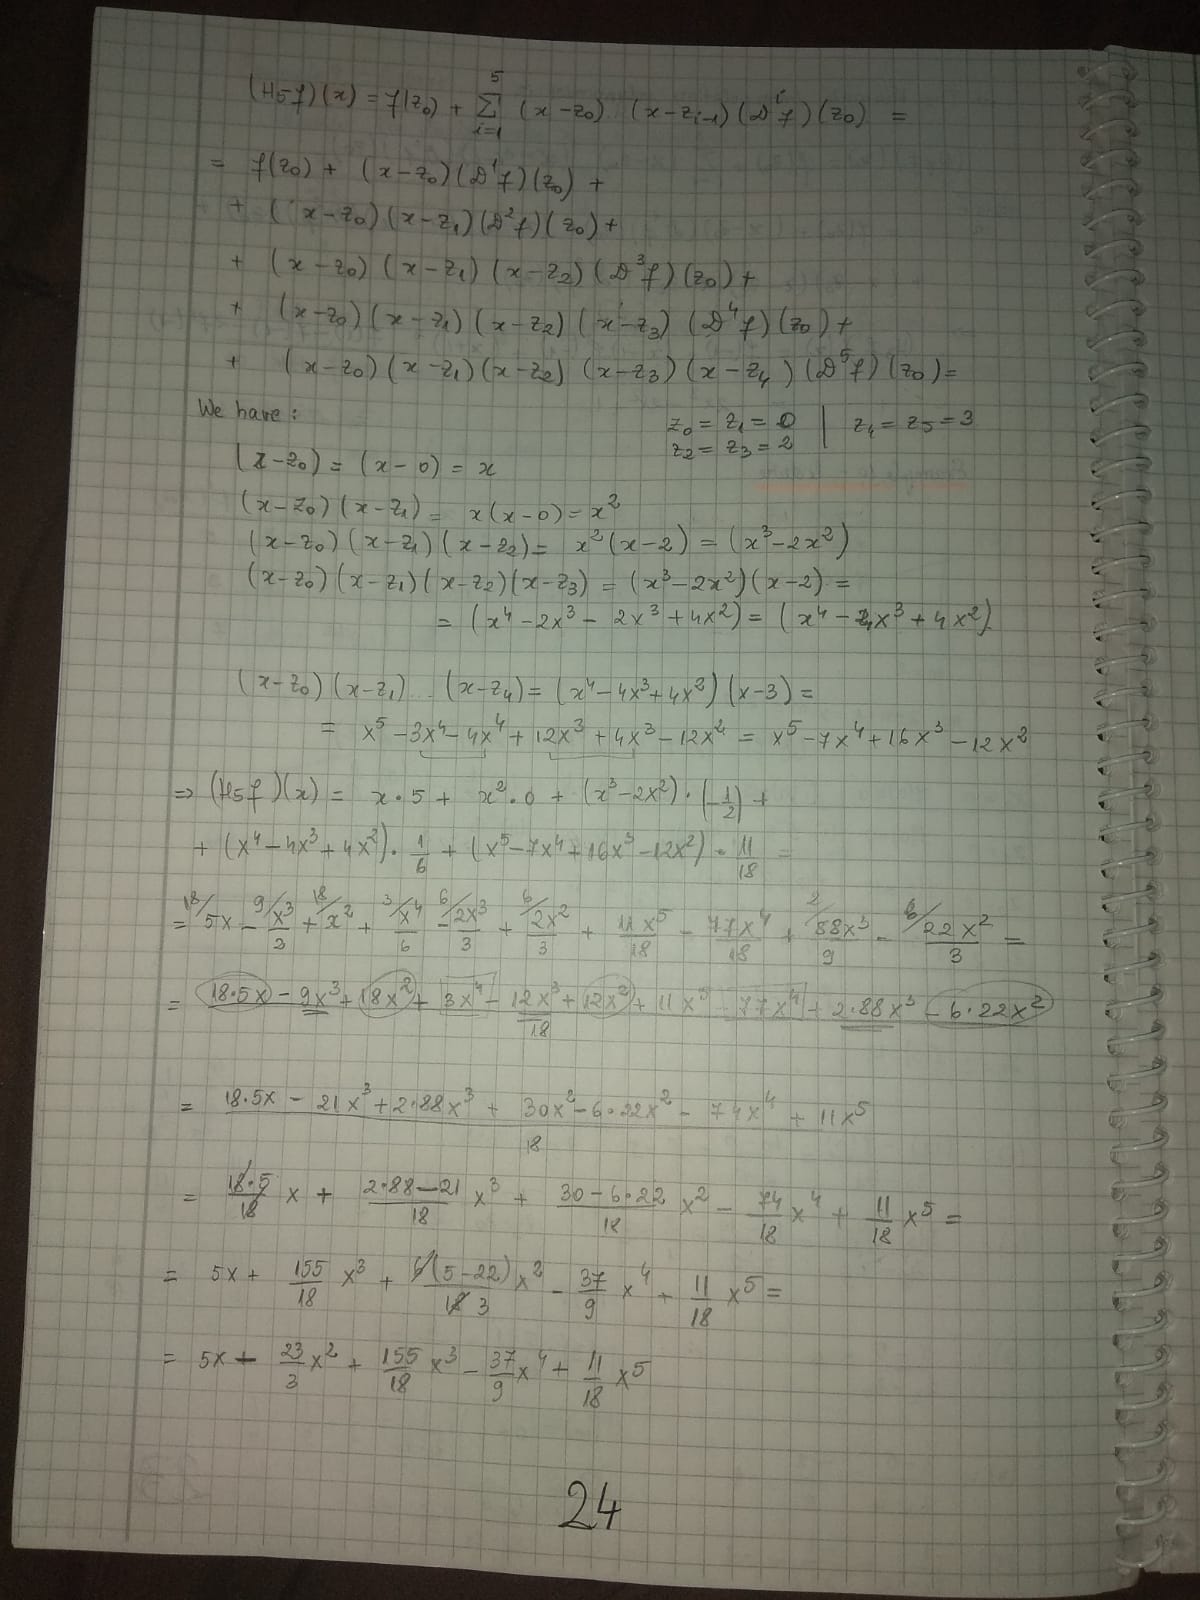 (H5f)(x) = f(z0) + 5∑i=1 (x-z0)..(x-zi-1)(D^i f)(z0) =
= f(z0) + (x-z0)(D^1 f)(z0) +
+ (x-z0)(x-z1)(D^2 f)(z0) +
+ (x-z0)(x-z1)(x-z2)(D^3 f)(z0) +
+ (x-z0)(x-z1)(x-z2)(x-z3)(D^4 f)(z0) +
+ (x-z0)(x-z1)(x-z2)(x-z3)(x-z4)(D^5 f)(z0) =
We have: z0 = z1 = 0 | z4 = z5 = 3
z2 = z3 = 2
(x-z0) = (x-0) = x
(x-z0)(x-z1) = x(x-0) = x^2
(x-z0)(x-z1)(x-z2) = x^2(x-2) = (x^3-2x^2)
(x-z0)(x-z1)(x-z2)(x-z3) = (x^3-2x^2)(x-2) =
= (x^4-2x^3-2x^3+4x^2) = (x^4-4x^3+4x^2)
(x-z0)(x-z1)..(x-z4) = (x^4-4x^3+4x^2)(x-3) =
= x^5-3x^4-4x^4+12x^3+4x^3-12x^2 = x^5-7x^4+16x^3-12x^2
⇒ (H5f)(x) = x·5 + x^2·0 + (x^3-2x^2)·(-1/2) +
+ (x^4-4x^3+4x^2)·1/6 + (x^5-7x^4+16x^3-12x^2)·11/18 =
= 18/ 5x - 9/ x^3/2 + 18/ x^2 + 3/ x^4/6 - 6/ 2x^3/3 + 6/ 2x^2/3 + 11x^5/18 - 77x^4/18 + 2/ 88x^3/9 - 6/ 22x^2/3 =
= 18·5x - 9x^3 + 18x^2 + 3x^4 - 12x^3 + 12x^2 + 11x^5 - 77x^4 + 2·88x^3 - 6·22x^2
18
= 18·5x - 21x^3 + 2·88x^3 + 30x^2 - 6·22x^2 - 74x^4 + 11x^5
18
= 18·5/18 x + 2·88-21/18 x^3 + 30-6·22/18 x^2 - 74/18 x^4 + 11/18 x^5 =
= 5x + 155/18 x^3 + 6(5-22)/18 3 x^2 - 37/9 x^4 + 11/18 x^5 =
= 5x - 23/3 x^2 + 155/18 x^3 - 37/9 x^4 + 11/18 x^5
24